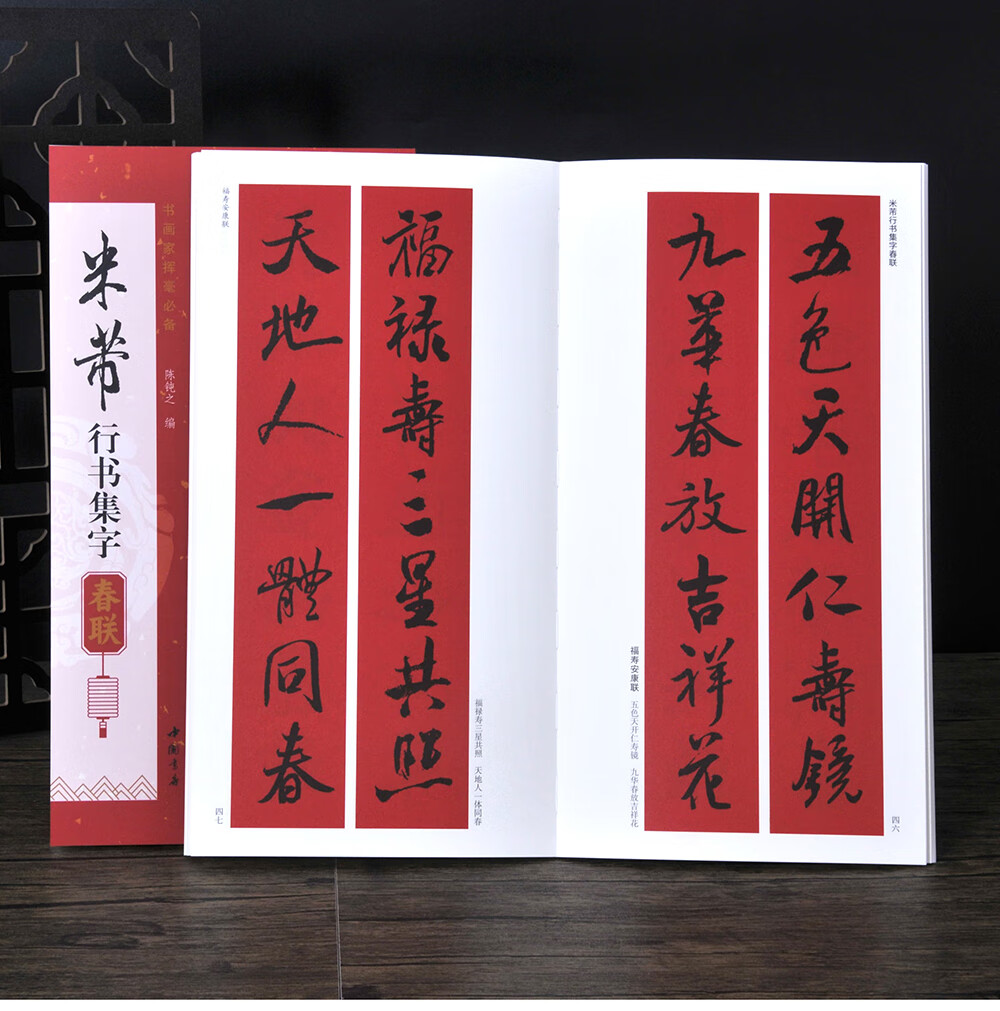 书画家挥毫必备
米芾
行书集字
春联
陈钝之 编
中国书店
米芾行书集字春联
五色天開仁壽鏡
九華春放吉祥花
福寿安康联 五色天开仁寿镜 九华春放吉祥花
四六
福禄壽三星共照
天地人一體同春
福禄寿三星共照 天地人一体同春
福寿安康联
四七